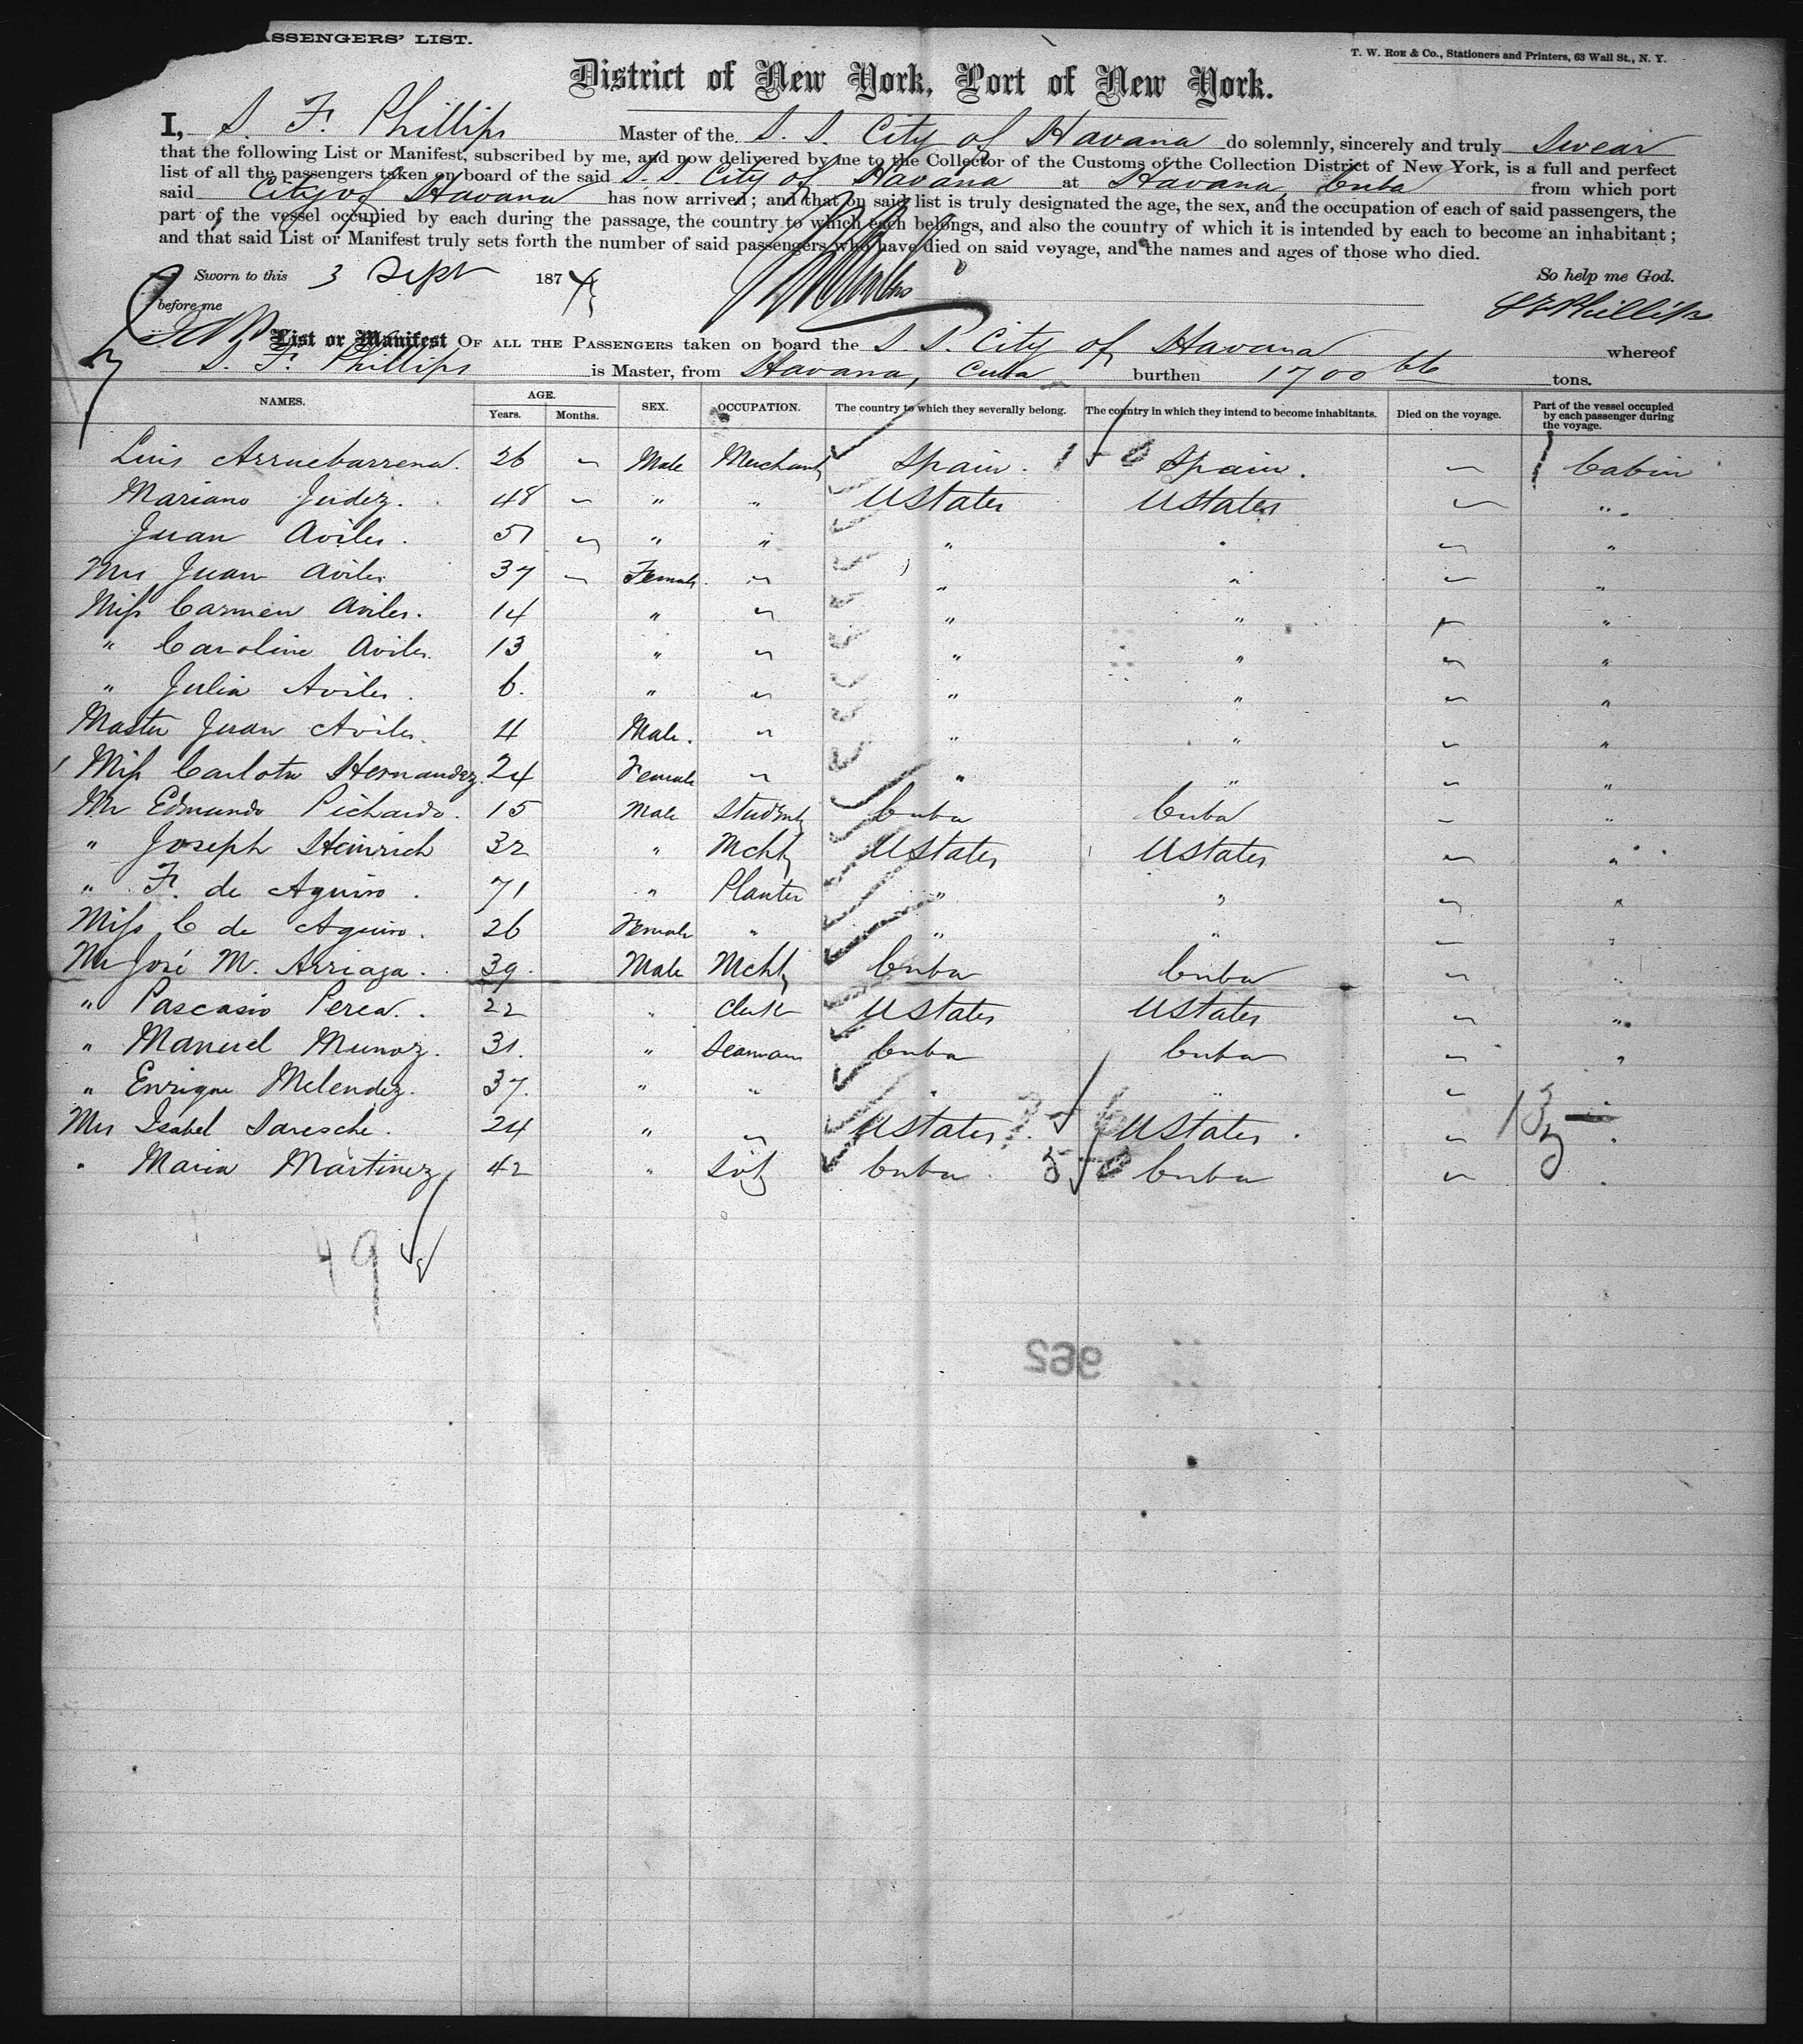 ASSENGERS' LIST.
T. W. ROE & Co., Stationers and Printers, 63 Wall St., N. Y.
District of New York, Port of New York.
I, S. F. Phillips Master of the S. S. City of Havana do solemnly, sincerely and truly Swear
that the following List or Manifest, subscribed by me, and now delivered by me to the Collector of the Customs of the Collection District of New York, is a full and perfect
list of all the passengers taken on board of the said S. S. City of Havana at Havana, Cuba from which port
said City of Havana has now arrived; and that on said list is truly designated the age, the sex, and the occupation of each of said passengers, the
part of the vessel occupied by each during the passage, the country to which each belongs, and also the country of which it is intended by each to become an inhabitant;
and that said List or Manifest truly sets forth the number of said passengers who have died on said voyage, and the names and ages of those who died.
Sworn to this 3 Sept 1874 So help me God.
before me S F Phillips
List or Manifest OF ALL THE PASSENGERS taken on board the S. S. City of Havana whereof
S. F. Phillips is Master, from Havana, Cuba burthen 1700 tons.
NAMES. AGE. Years. Months. SEX. OCCUPATION. The country to which they severally belong. The country in which they intend to become inhabitants. Died on the voyage. Part of the vessel occupied by each passenger during the voyage.
Luis Arruebarrena. 26 Male Merchant Spain. 1-0 Spain. Cabin
Mariano Judez. 48 " " UStates UStates "
Juan Aviles. 51 " " " " "
Mrs Juan Aviles 37 Female " " "
Miss Carmen Aviles. 14 " " " "
" Caroline Aviles. 13 " " " "
" Julia Aviles. 6. " " " "
Master Juan Aviles. 4 Male. " " "
Miss Carlota Hernandez. 24 Female " " "
Mr Edmundo Pichardo. 15 Male Student Cuba Cuba "
" Joseph Heinrich 32 " Mcht UStates UStates "
" F. de Aguiro. 71 " Planter " " "
Miss C de Aguiro. 26 Female " " " "
Mr José M. Arriaga. 39. Male Mcht Cuba Cuba "
" Pascasio Perea. 22 " Clerk UStates UStates "
" Manuel Munoz. 31. " Seaman Cuba Cuba "
" Enrique Melendez. 37. " " " "
Mrs Isabel Saresche. 24 " UStates. UStates. 13 "
" Maria Martinez 42 " Cuba. 5-0 Cuba "
49
962